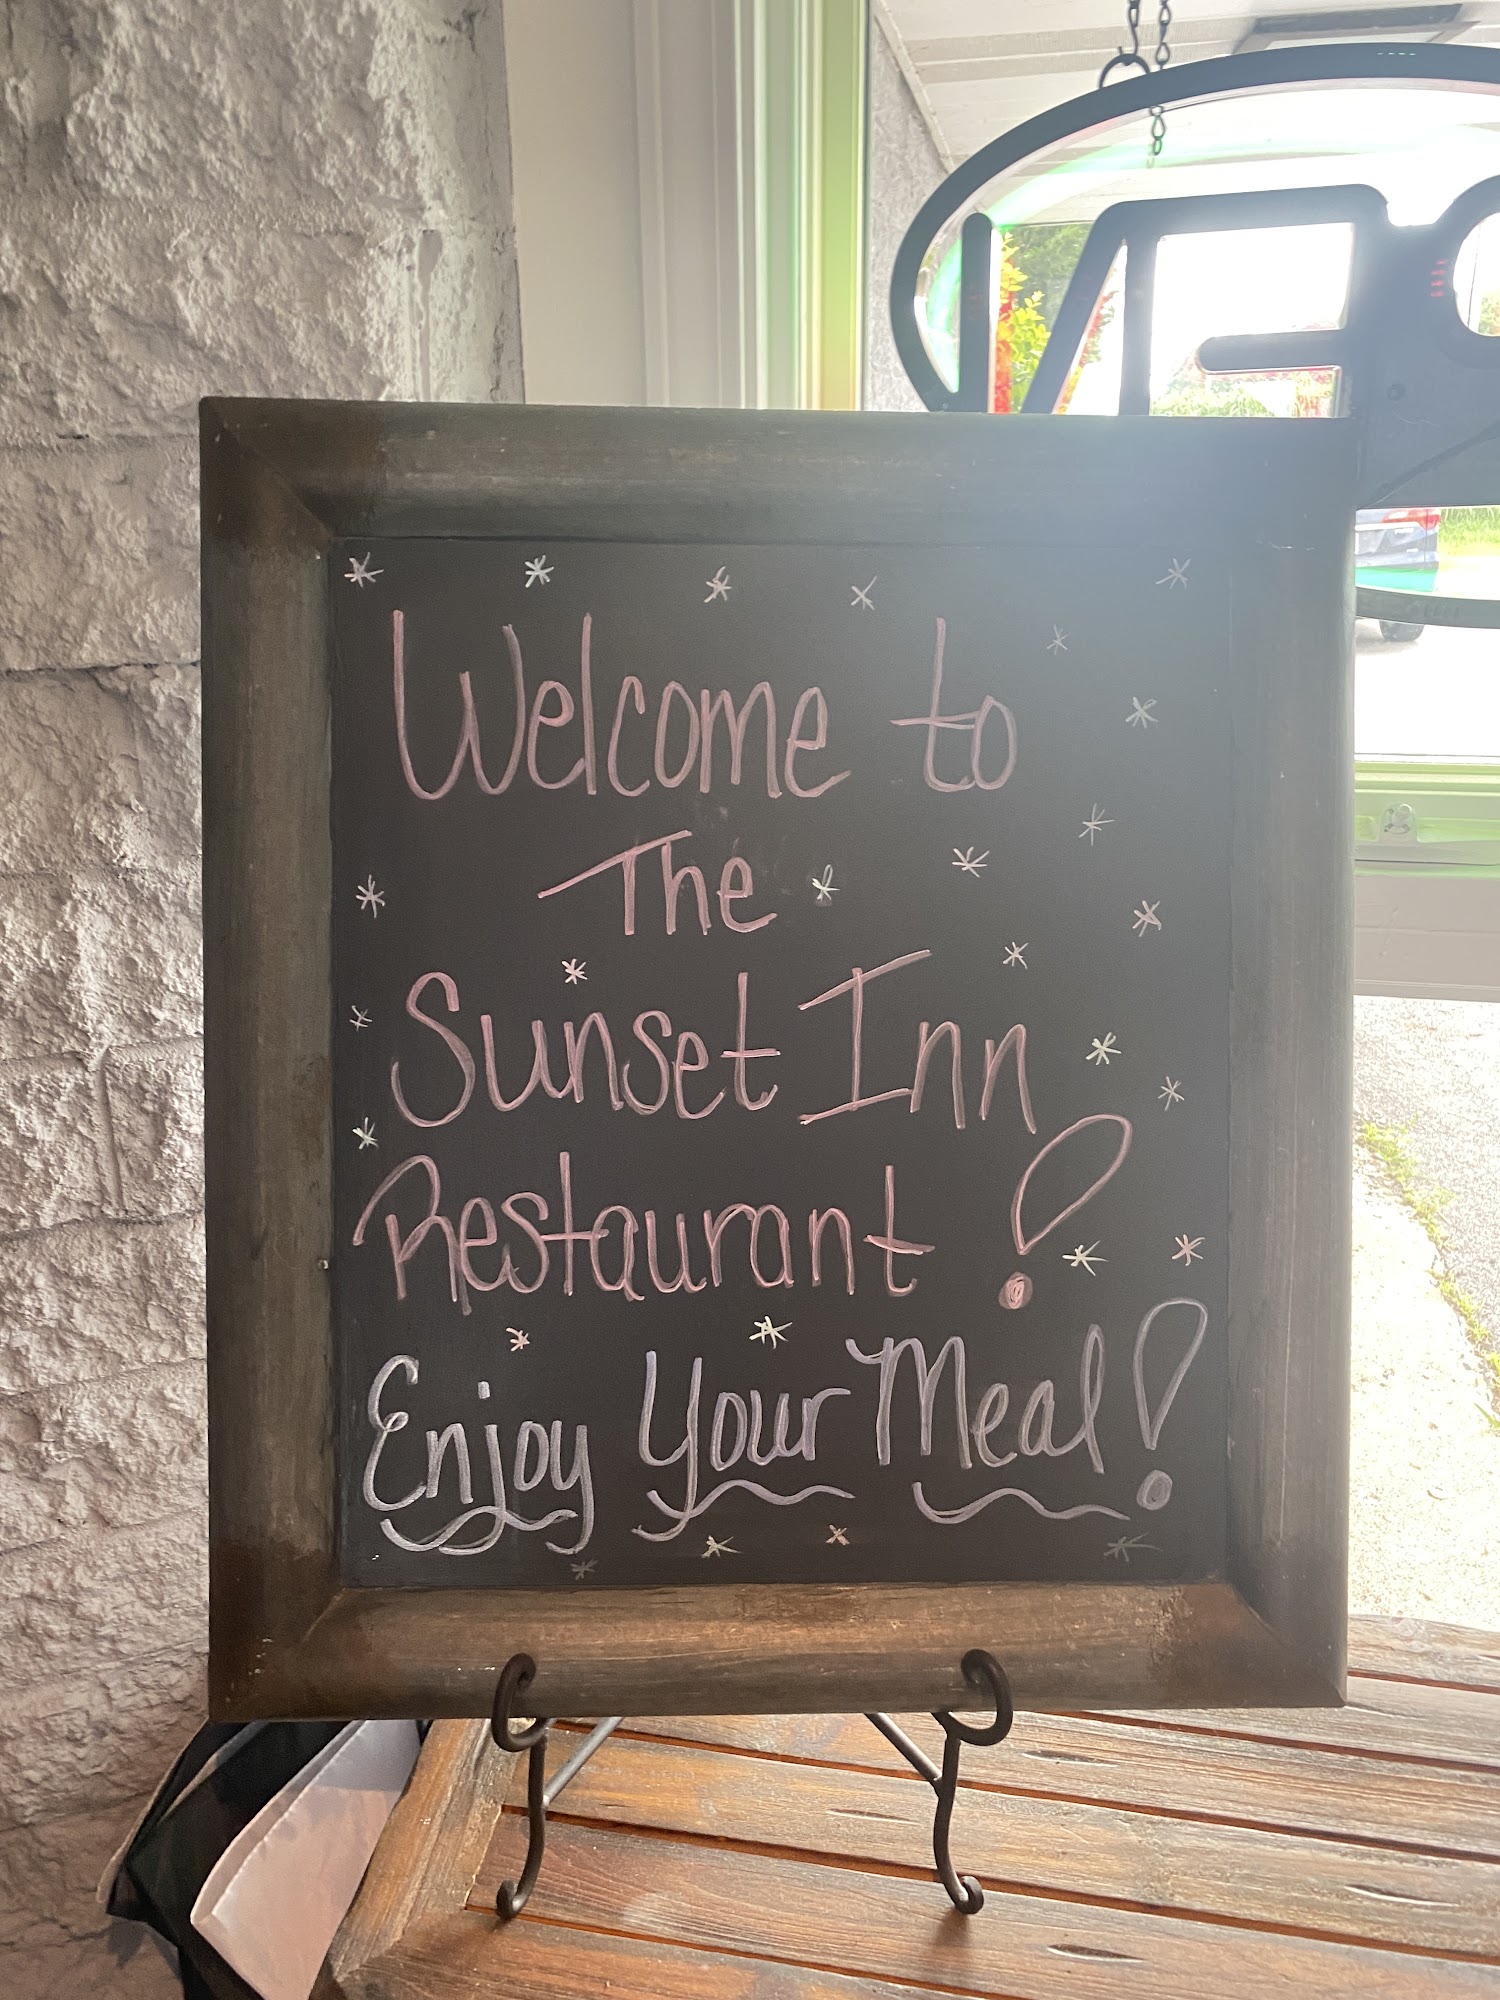 Welcome to
The
Sunset Inn
Restaurant!
Enjoy Your Meal!